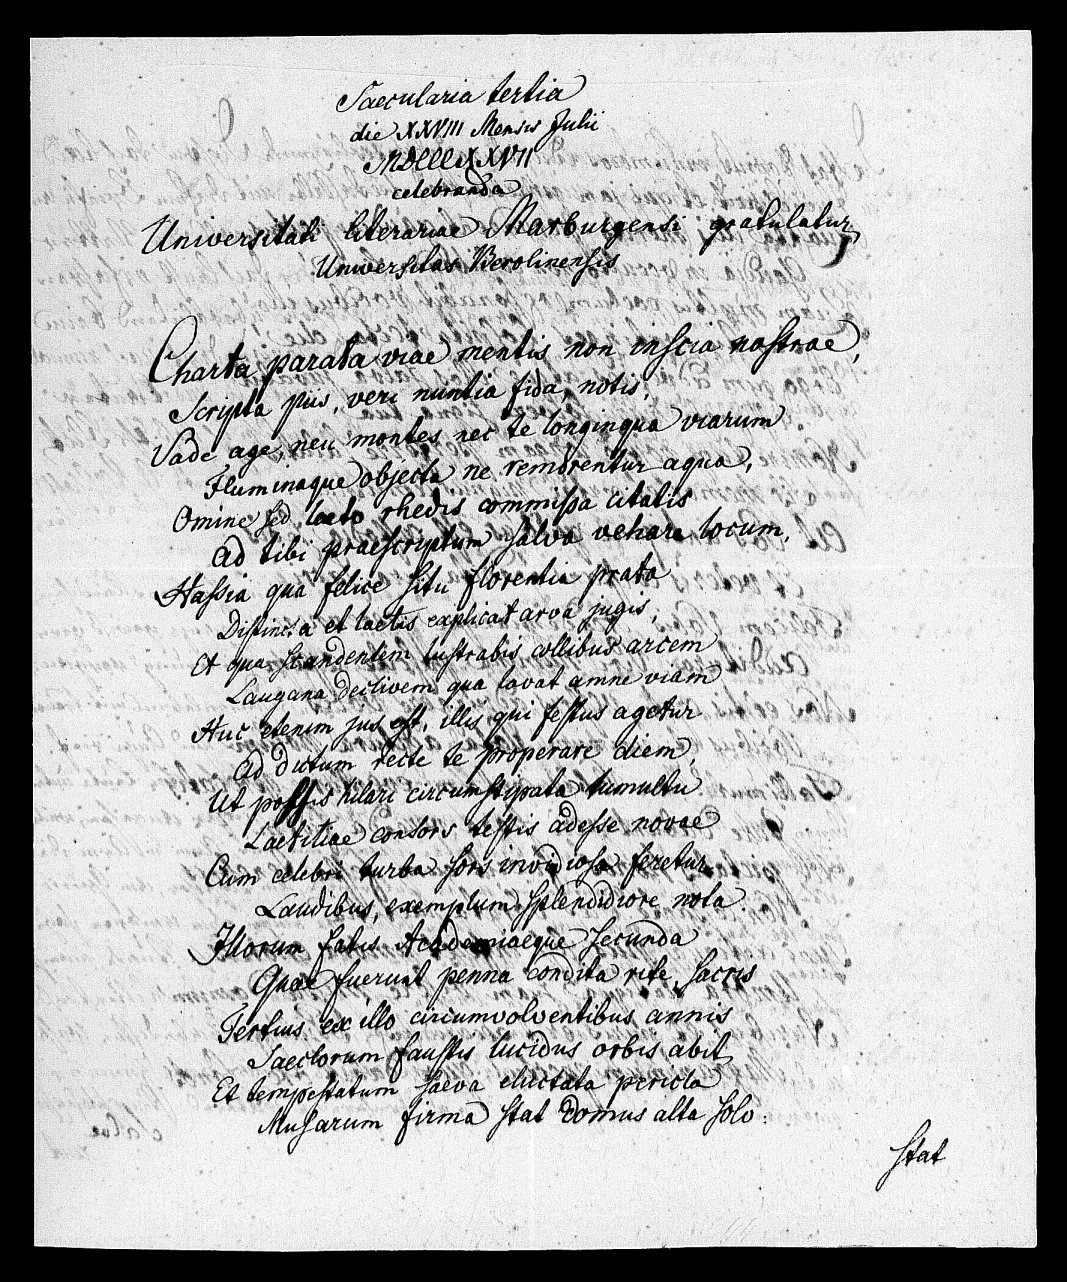 Saecularia tertia
die XXVIII Mensis Julii
MDCCCXXVII
celebranda
Universitati literariae Marburgensi gratulatur
Universitas Berolinensis
Charta parata viae mentis non inscia nostrae,
Scripta piis, veri nuntia fida, notis,
Vade age, neu montes nec te longinqua viarum
Fluminaque objecta ne remorentur aqua,
Omine sed laeto rhedis commissa citatis
Ad tibi praescriptum salva vehare locum,
Hassia qua felice situ florentia prata
Distincta et laetis explicat arva jugis,
Et qua scandentem lustrabis collibus arcem
Laugana declivem qua lavat amne viam
Huc etenim jus est, illis qui festus agetur
Ad dictum recte te properare diem,
Ut possis hilari circumstipata tumultu
Laetitiae consors testis adesse novae
Cum celebri turba sors invidiosa feretur
Laudibus, exemplum splendidiore nota
Illorum fatis Academiaeque secunda
Quae fuerunt penna condita rite sacris
Tertius ex illo circumvolventibus annis
Saeclorum faustis lucidus orbis abit
Et tempestatum saeva eluctata pericla
Musarum firma stat domus alta solo:
Stat